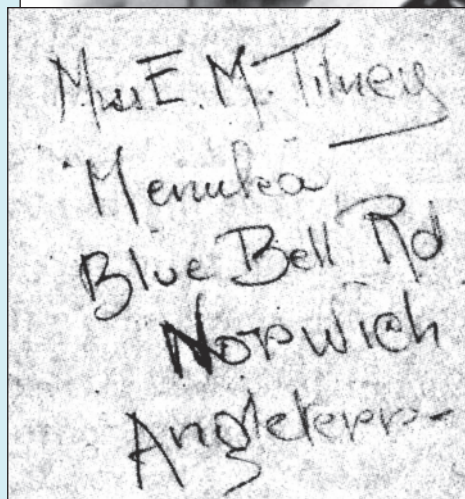 Miss E. M. Tilney
Menuka
Blue Bell Rd
Norwich
Angleterr-